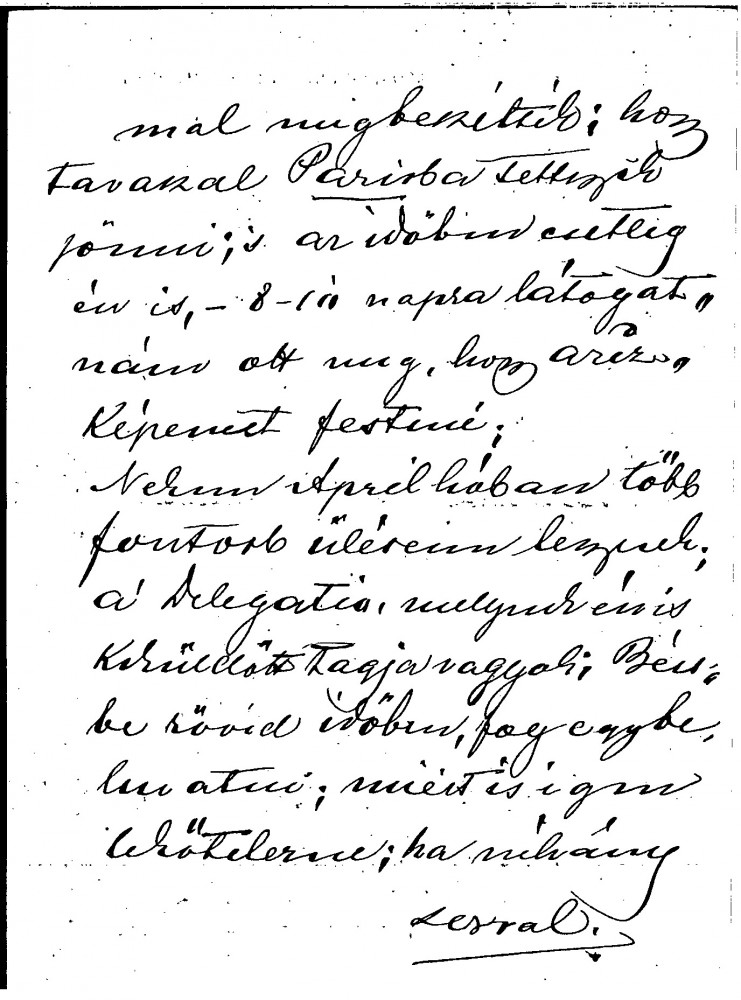 mal megbekéltték; hogy
tavakal Parisba tettszik
jönni; 's az időben esetleg
én is, – 8–10 napra látogat„
nám ott meg, hogy arcz„
Képemet festené;
Nekem April hóban több
fontosb üléseim lesznek;
a' Delegatio, melynek én is
Kiküldött Tagja vagyok; Bécs„
be rövid időben, fog egybe,
hivatni; miért is igen
lekötelezne; ha néhány